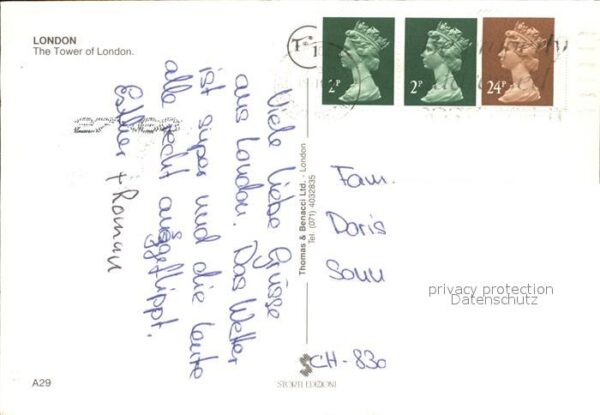 LONDON
The Tower of London.
2P
2P
24P
Viele liebe Grüsse
aus London. Das Wetter
ist super und die Leute
alle recht ausgeflippt.
Esther + Roman
Thomas & Benacci Ltd. - London
Tel. (071) 4032835
Fam.
Doris
Sonn
privacy protection
Datenschutz
CH-830
A29
STORTI EDIZIONI